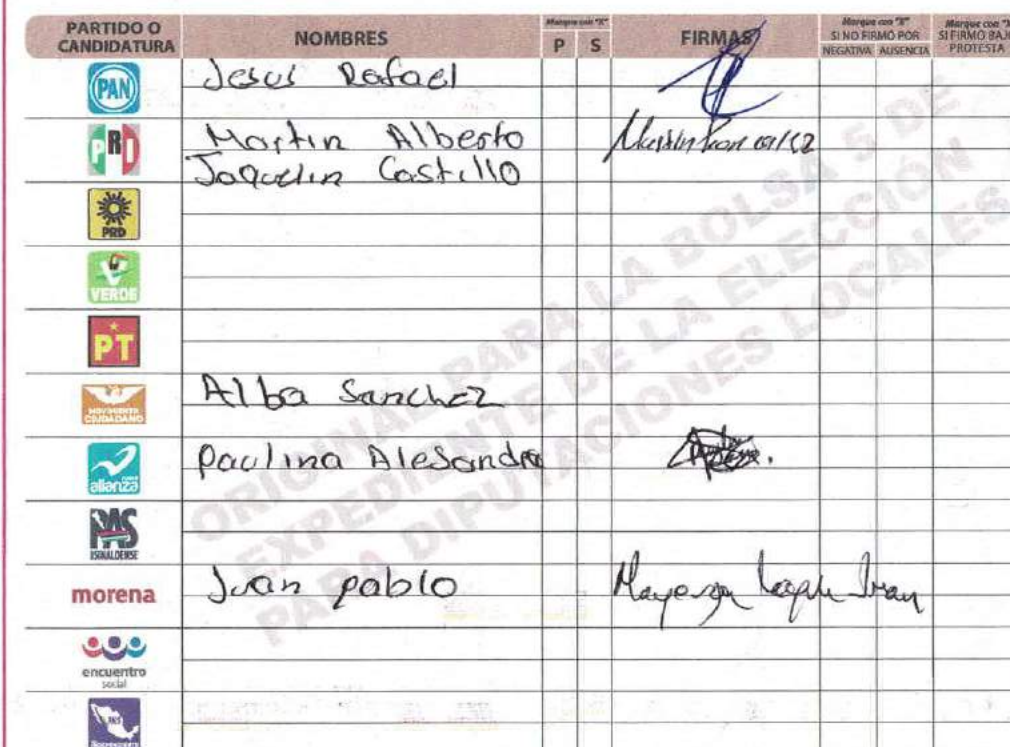 PARTIDO O CANDIDATURA NOMBRES Marque con "X" P S FIRMAS Marque con "X" SI NO FIRMÓ POR NEGATIVA AUSENCIA Marque con "X" SI FIRMÓ BAJO PROTESTA
PAN Jesus Rafael
PRI Martin Alberto
Jaquelin Castillo
PRD
VERDE
PT
MOVIMIENTO CIUDADANO Alba Sanchez
alianza Paulina Alesandra
PAS SINALOENSE
morena Juan pablo
encuentro social
ORIGINAL PARA LA BOLSA 5 DE
EXPEDIENTE DE LA ELECCIÓN
PARA DIPUTACIONES LOCALES